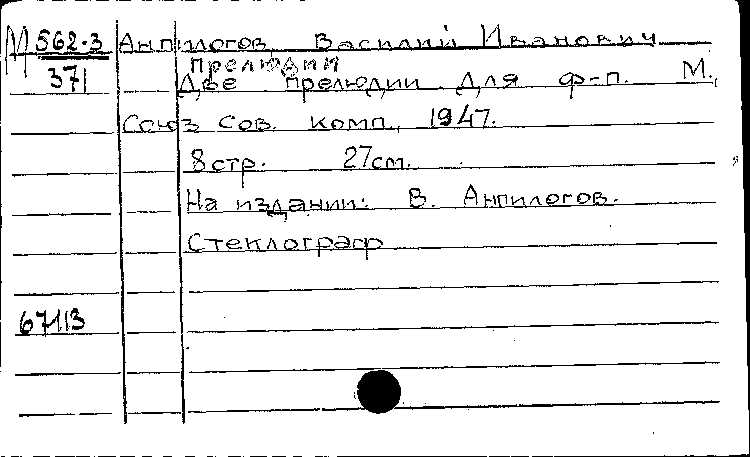 М 562-3 Анпилогов, Василий Иванович
Прелюдии
371 Две прелюдии для ф-п. М.,
Союз сов. комп., 1947.
8 стр. 27 см.
На издании: В. Анпилогов.
Стеклограф
67113